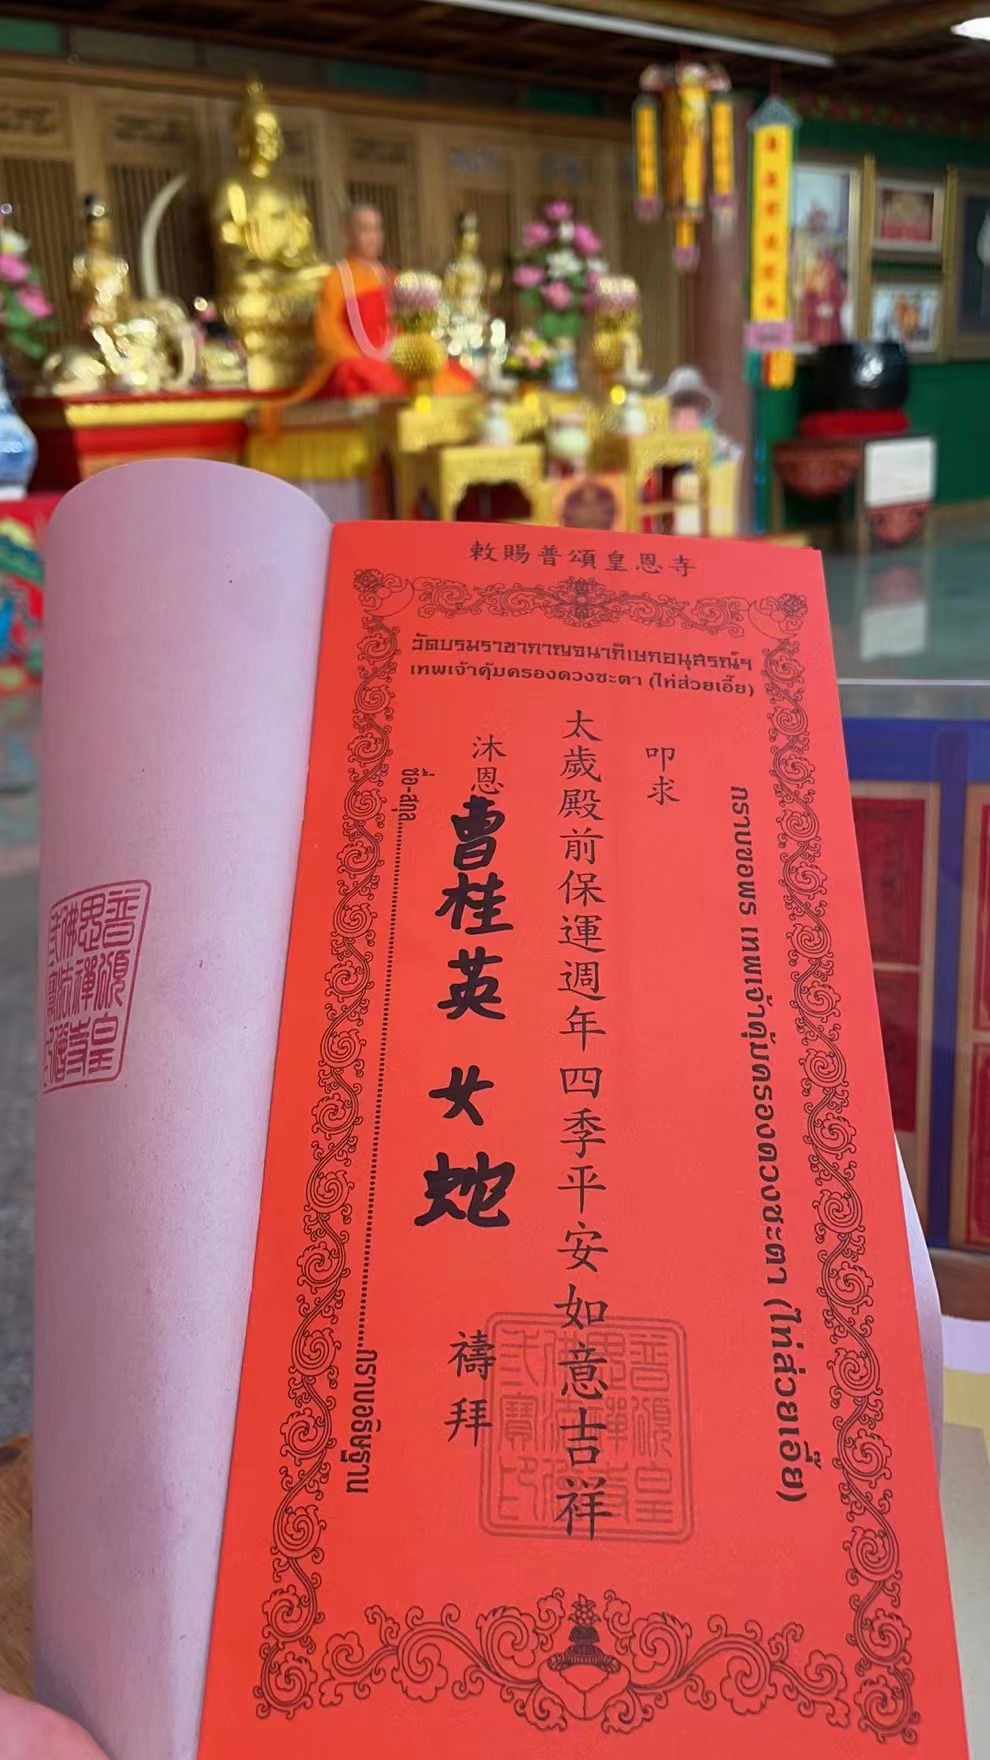 敕賜普頌皇恩寺
วัดบรมราชากาญจนาภิเษกอนุสรณ์ฯ
เทพเจ้าคุ้มครองดวงชะตา (ไท่ส่วยเอี๊ย)
กราบขอพร เทพเจ้าคุ้มครองดวงชะตา (ไท่ส่วยเอี๊ย)
叩求
太歲殿前保運週年四季平安如意吉祥
沐恩曹桂英 女 蛇 禱拜
ชื่อ-สกุล กราบอธิษฐาน